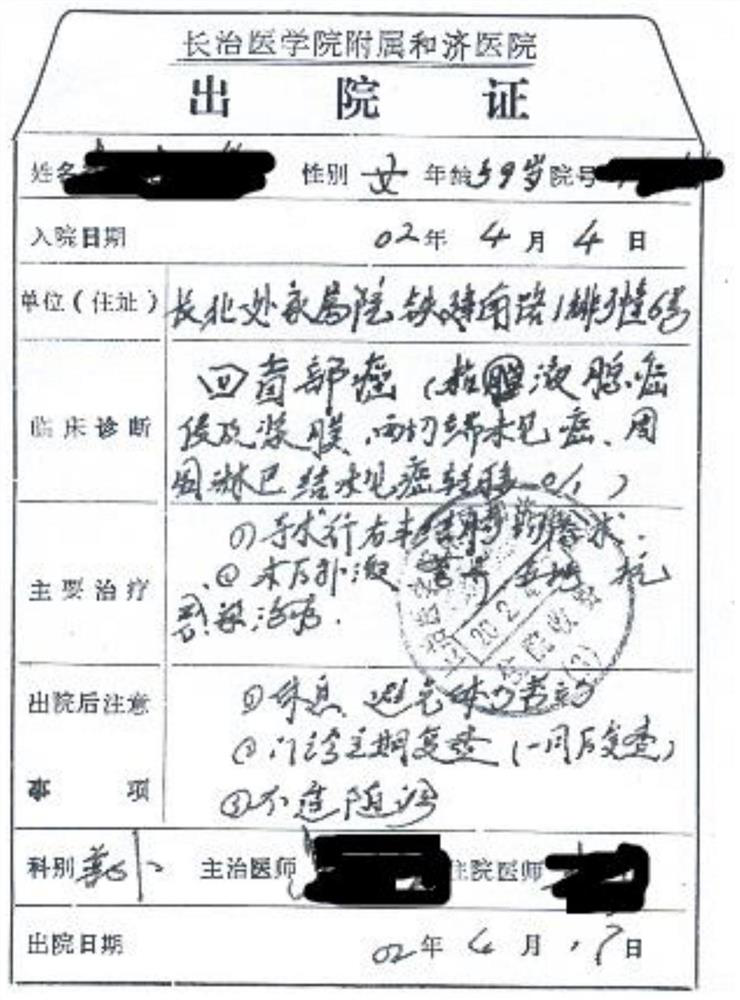 长治医学院附属和济医院
出院证
姓名 性别 女 年龄 59岁 院号
入院日期 02年 4月 4日
单位(住址) 长北处家属院 铁建南路1排 6号
临床诊断 回盲部癌(粘液腺癌
侵及浆膜、两切端未见癌、周
围淋巴结未见癌转移 0/1)
主要治疗 ①手术行右半结肠切除术.
②术后补液 营养 支持 抗
治疗.
出院后注意 ①休息 避免体力劳动
②门诊定期复查(一周后复查)
事项 ③不适随诊
科别 普外 主治医师 住院医师
出院日期 02年 4月 17日